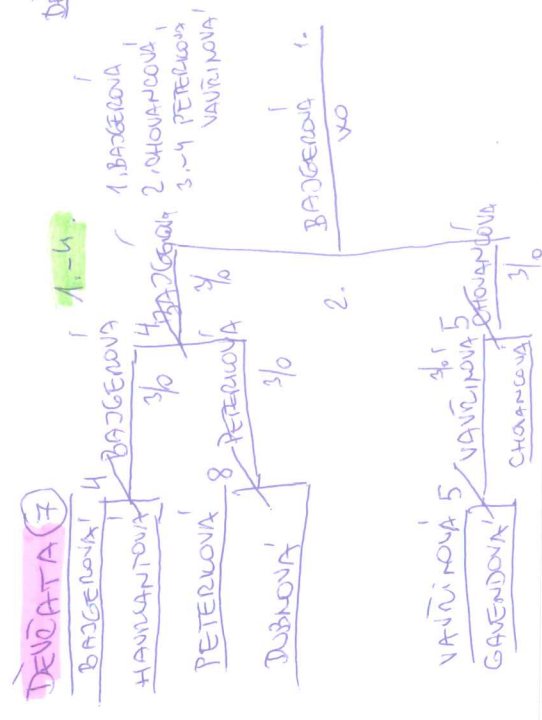 DĚVČATA (7)
1.-4.
BAJGEROVÁ 4
HAVRLANTOVÁ
PETERKOVÁ 8
DUBNOVÁ
VAVŘINOVÁ 5
GAVENDOVÁ
BAJGEROVÁ 4
3/0
PETERKOVÁ
3/0
VAVŘINOVÁ 5
CHOVANCOVÁ
BAJGEROVÁ
3/0
CHOVANCOVÁ
3/0
2.
BAJGEROVÁ 1.
1. BAJGEROVÁ
2. CHOVANCOVÁ
3.-4 PETERKOVÁ
VAVŘINOVÁ